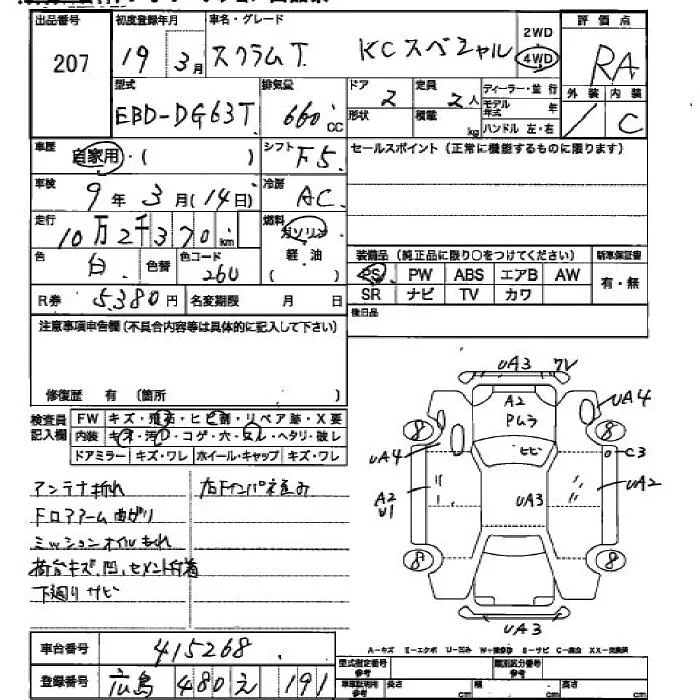 出品番号 初度登録年月 車名・グレード 2WD 評価点
207 19年 3月 スクラムT KCスペシャル 4WD RA
型式 排気量 ドア 定員 ディーラー・並行 外装 内装
EBD-DG63T 660cc 2 2人 モデル年式 年 1 C
形状 積載 kg ハンドル 左・右
車歴 自家用・( ) シフト F5 セールスポイント(正常に機能するものに限ります)
車検 9年 3月(14日) 冷房 AC
走行 10万2千370km 燃料 ガソリン
色 白 色替 色コード 26U 軽油 ( )
装備品(純正品に限り○をつけてください) 新車保証書
PS PW ABS エアB AW 有・無
SR ナビ TV カワ
R券 5,380円 名変期限 月 日 後日品
注意事項申告欄(不具合内容等は具体的に記入して下さい)
修復歴 有(箇所 )
検査員記入欄 FW キズ・飛石・ヒビ割・リペア跡・X要
内装 キズ・汚レ・コゲ・穴・ヌレ・ヘタリ・破レ
ドアミラー キズ・ワレ ホイール・キャップ キズ・ワレ
アンテナ折れ
Fロアアーム曲がり
ミッションオイルもれ
荷台キズ、凹、セメント付着
下廻りサビ
UA3 フV
A2 Pムラ UA4
8 8
UA4 ヒビ C3
A2 U1 UA3 UA2
8 8
UA3
A-キズ E-エクボ U-凹み W-補修跡 S-サビ C-腐食 XX-交換済
車台番号 415268
登録番号 広島 480 え 191
型式指定番号 類別区分番号
長さ cm 幅 cm 高さ cm